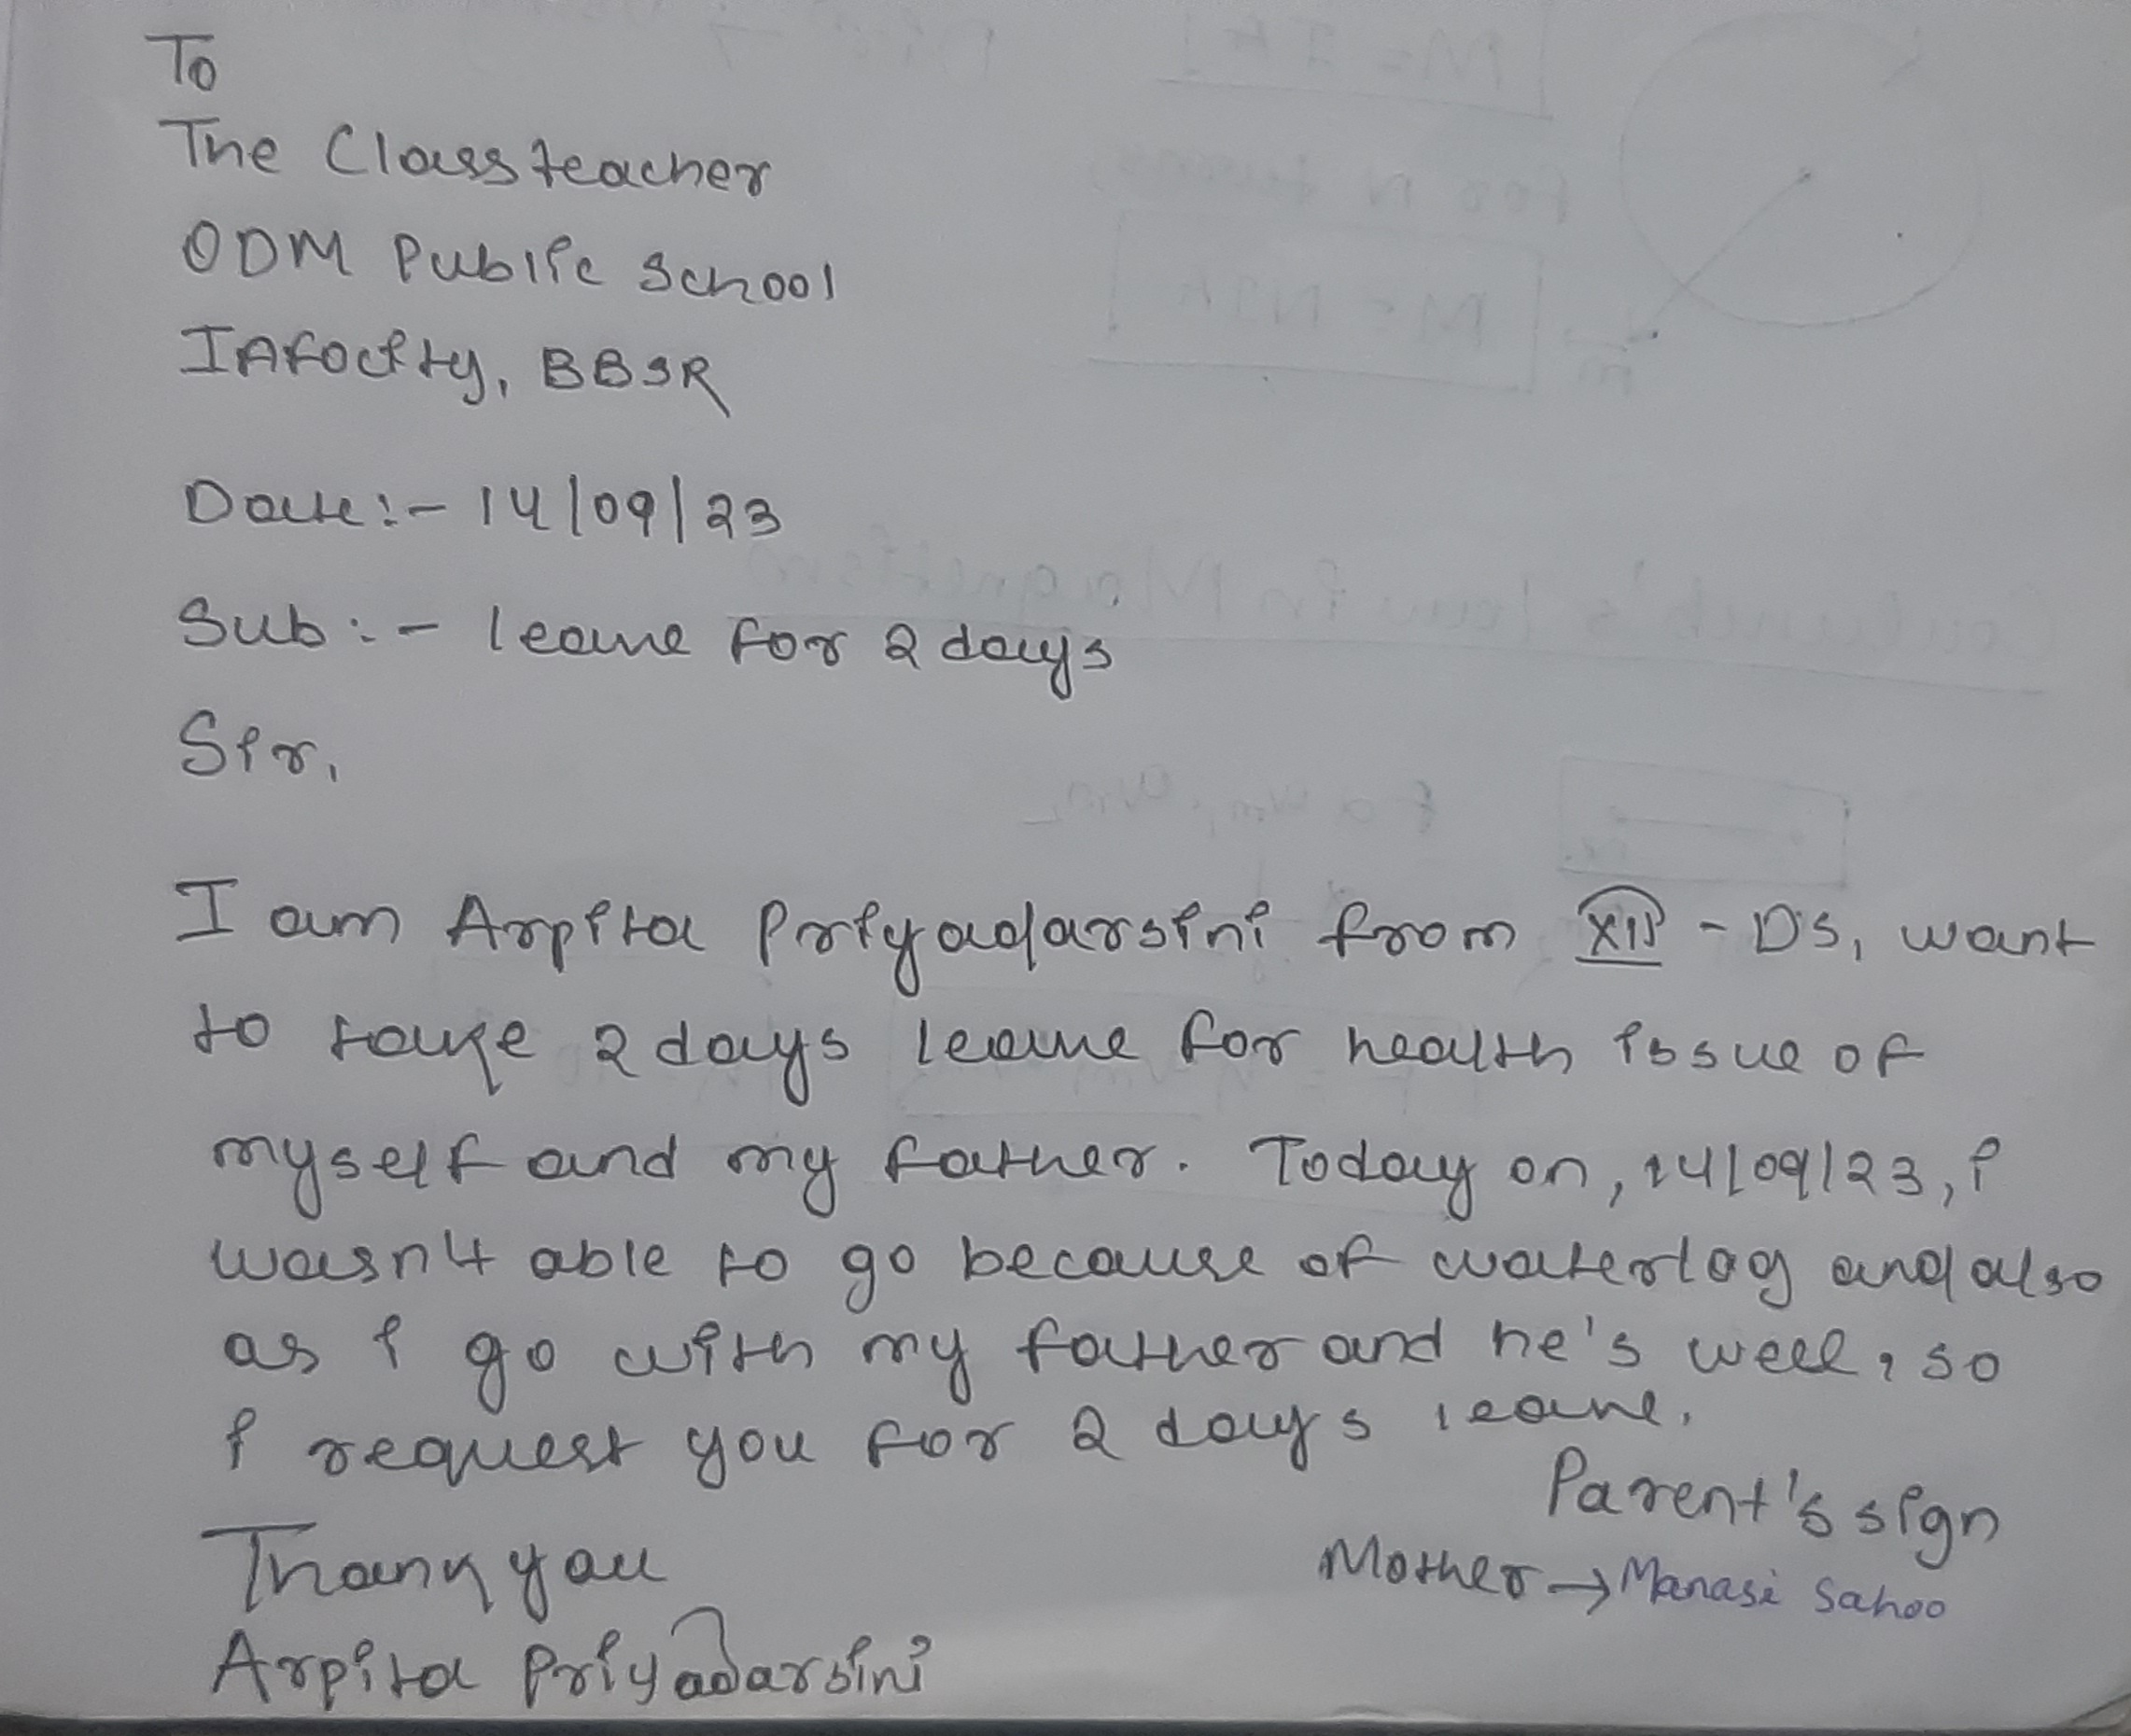 To
The Class teacher
ODM Public School
Infocity, BBSR
Date:- 14/09/23
Sub:- leave for 2 days
Sir,
I am Arpita Priyadarsini from XII - DS, want
to take 2 days leave for health issue of
myself and my father. Today on, 14/09/23, i
wasn't able to go because of waterlog and also
as i go with my father and he's well, so
i request you for 2 days leave.
Parent's sign
Thank you
Mother → Manasi Sahoo
Arpita Priyadarsini